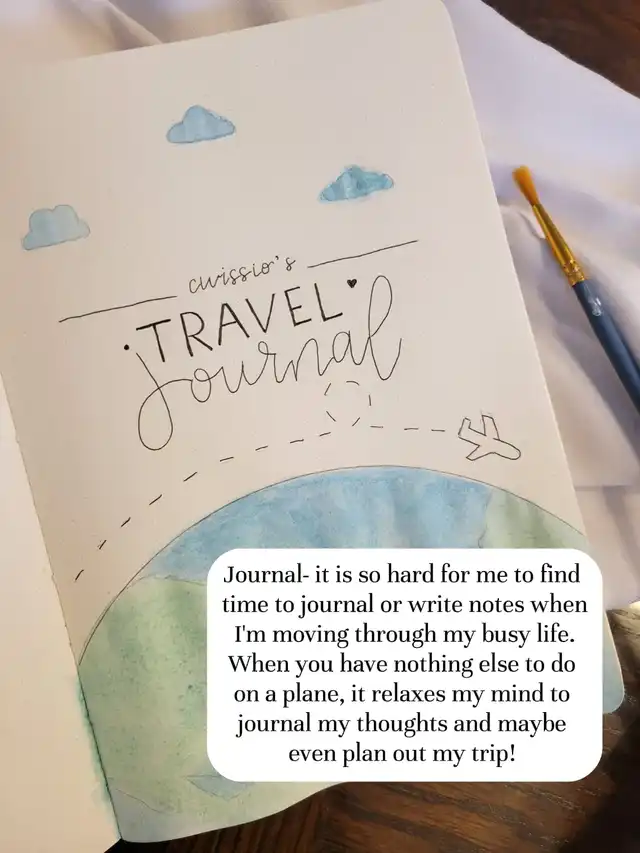 cwissio's
TRAVEL
Journal
Journal- it is so hard for me to find
time to journal or write notes when
I'm moving through my busy life.
When you have nothing else to do
on a plane, it relaxes my mind to
journal my thoughts and maybe
even plan out my trip!